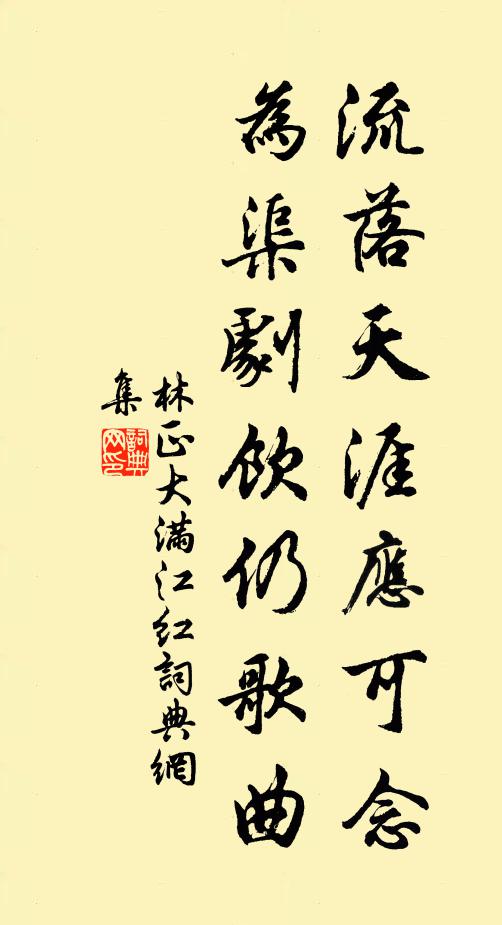 流落天涯應可念
為渠劇飲仍歌曲
林正大满江红詞典網
集
詞典
网印